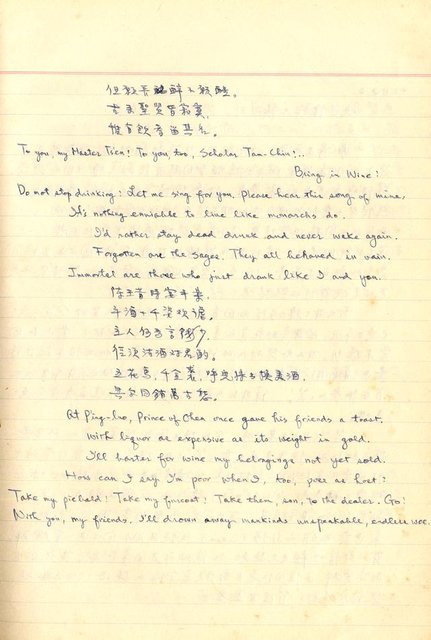 但教长醉不教醒。
古来聖賢皆寂寞,
惟有飲者留其名。
To you, my Master Tien! To you, too, Scholar Tan-Chiu!..
Bring in Wine!
Do not stop drinking! Let me sing for you. Please hear this song of mine,
It's nothing enviable to live like monarchs do.
I'd rather stay dead drunk and never wake again.
Forgotten are the Sages. They all behaved in vain.
Immortal are those who just drank like I and you.
陈王昔時宴平樂,
斗酒十千恣欢謔。
主人何为言錢少,
径須沽酒对君酌。
五花马,千金裘,呼兒将出换美酒,
与尔同銷萬古愁。
At Ping-lo, Prince of Chen once gave his friends a toast.
With liquor as expensive as its weight in gold.
I'll barter for wine my belongings not yet sold.
How can I say I'm poor when I, too, pose as host?
Take my piebald! Take my furcoat! Take them, son, to the dealer. Go!
With you, my friends, I'll drown away mankinds unspeakable, endless woe.